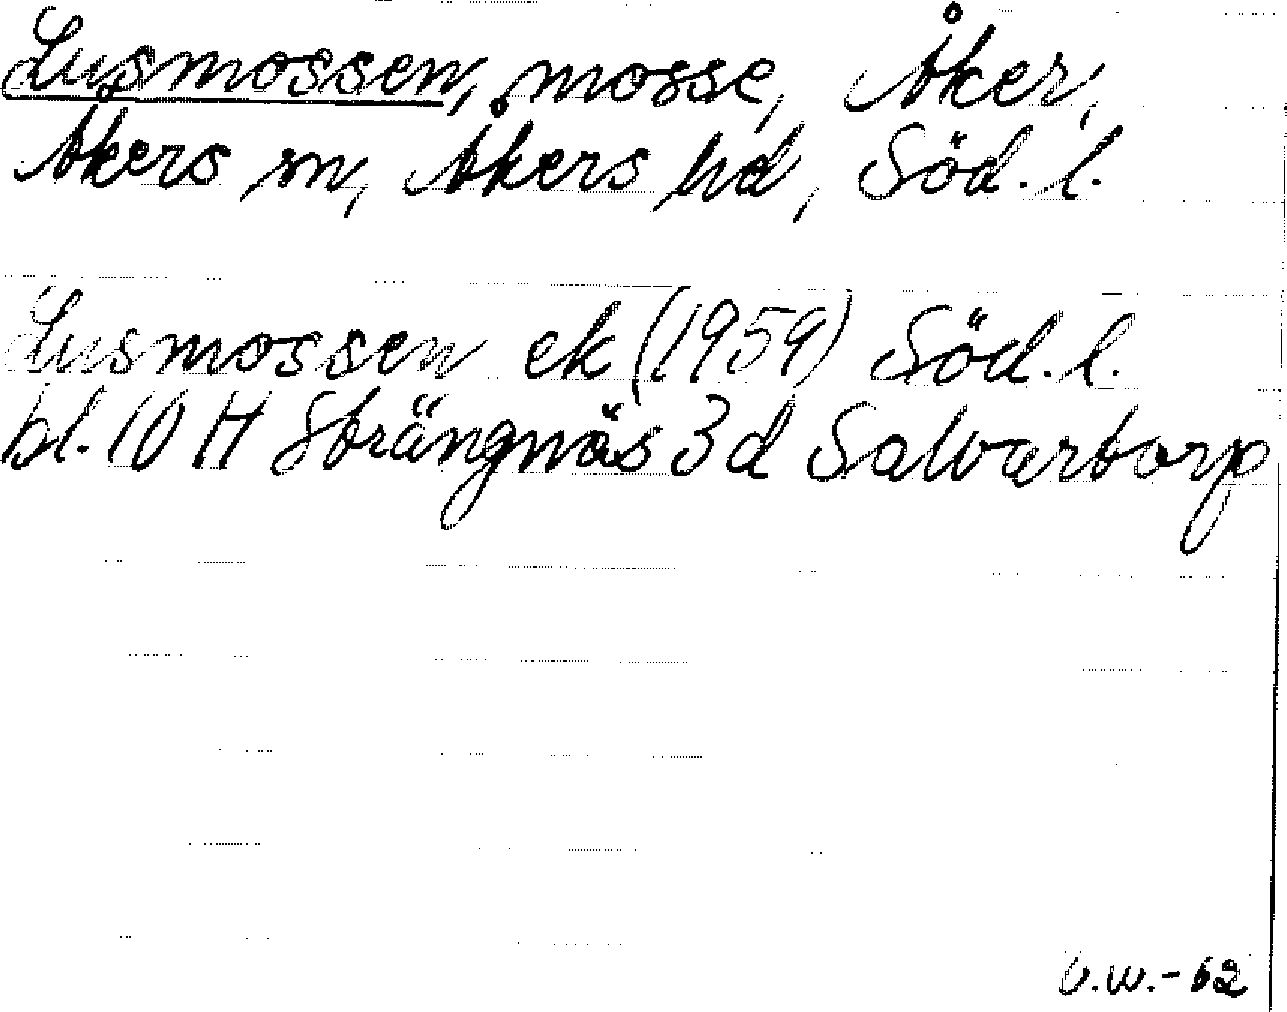 Lusmossen, mosse, Åker,
Åkers sn, Åkers hd, Söd. l.
Lusmossen ek (1959) Söd. l.
bl. 10 H Strängnäs 3 d Salvartorp
U.W.-62